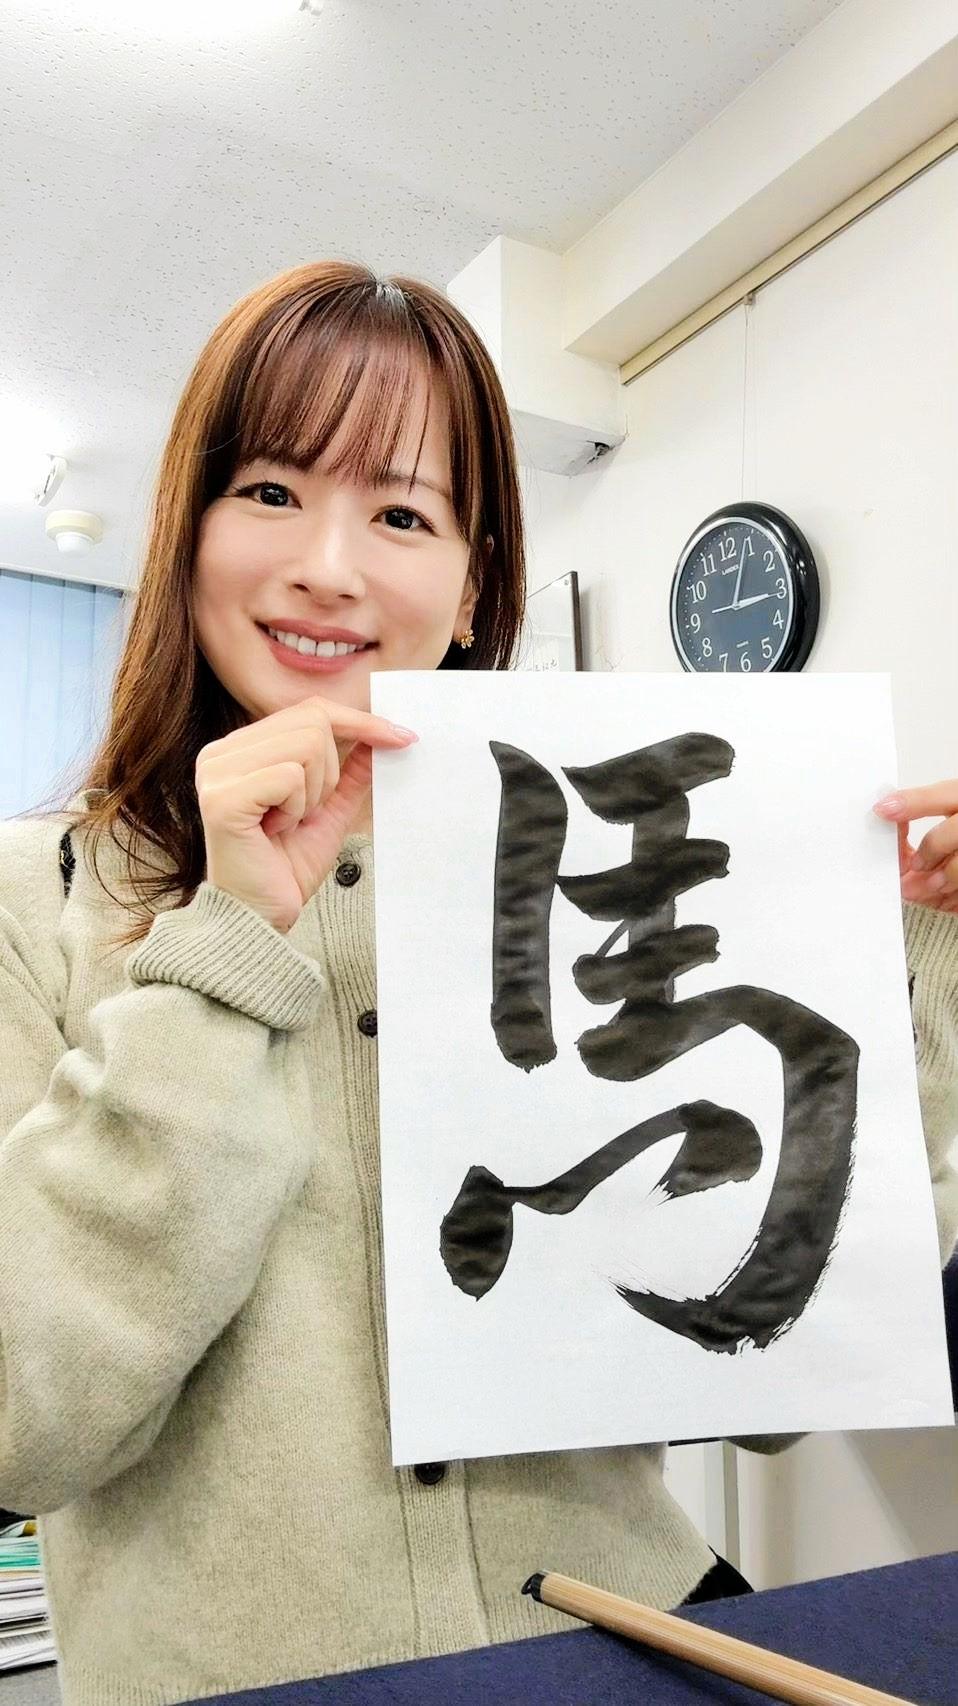 馬
11 12 1
10 2
LANDEX
9 3
8 4
7 6 5